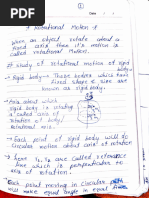 1
Date :
* Rotational Motion *
When an object rotate about a
rigid axis then it's motion is
called rotational motion.
# Study of rotational motion of rigid
body
Rigid body → Those bodies which have
fixed shape
is known as rigid body.
Axis about which
rigid body is rotating
is called axis of
rotation or axis of
rotation
→ Each point of rigid body will do
circular motion about axis of rotation
→ here r₁, r₂ are called reference
line which is perpendicular to
axis of rotation.
Each point moving in circular path
will make equal angle in equal time